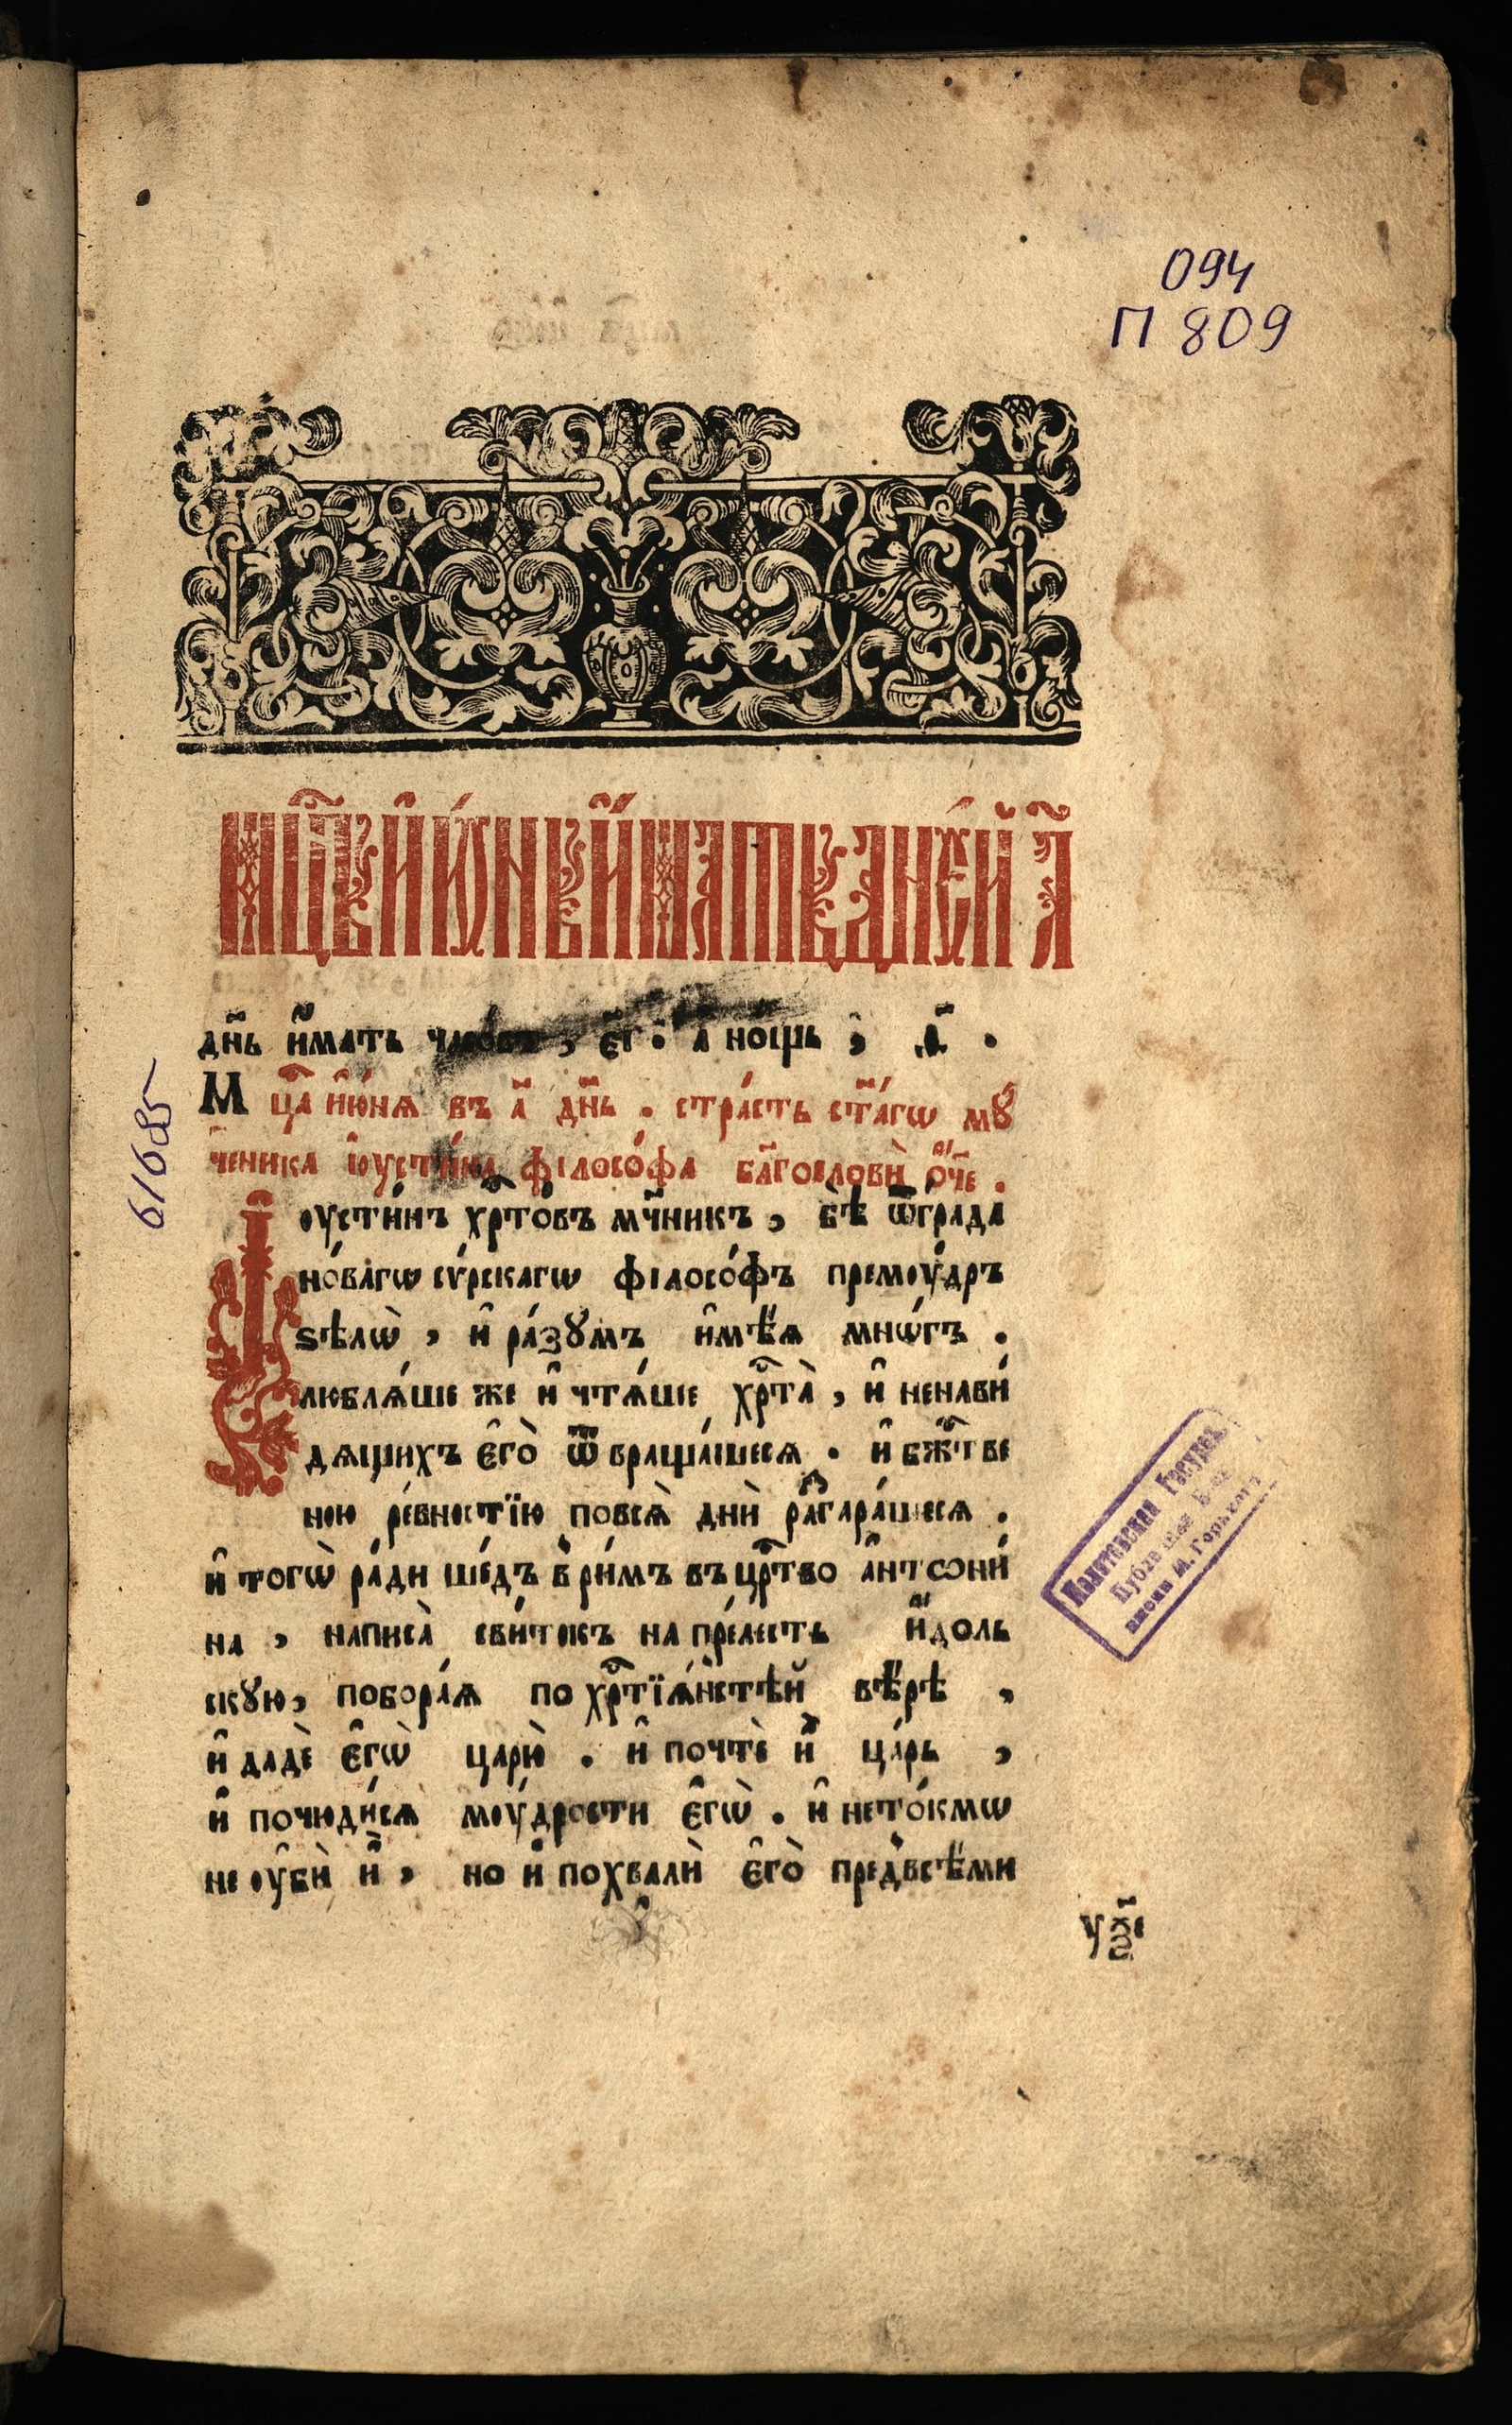 094
П 809
мц҃ъ і҆ю́нь и҆́мать дне́й л҃
дн҃ь и҆́мать часо́въ, є҃і. а҆ но́щь, д҃.
Мцⷭ҇а і҆ю́нѧ въ а҃ дн҃ь. стра́сть ст҃а́гѡ мꙋ́
ченика і҆усті́на філосо́фа бл҃гослови̑ ѻ҆́ч҃е.
Іоусти́нъ хрⷭ҇то́въ мч҃никъ, бѣ ѿгра́да
но́вагѡ сѵ́рскагѡ філосо́фъ премоу́дръ
ѕѣлѡ̀, и҆ ра́зꙋмъ и҆мѣ́ѧ мнѡ́гъ.
люблѧ́ше же и҆ чтѧ́ше хрⷭ҇та̀, и҆ ненави́
дѧщихъ є҆го̀ ѿвраща́шесѧ. и҆ бж҃тве
ною ре́вностїю повсѧ̀ днѝ раⷥгара́шесѧ.
и҆ тогѡ̀ ра́ди ше́дъ в ри́мъ въ црⷭ҇тво а҆нтѡни́
на, написа̀ сви́токъ на пре́лесть и҆́доль
скꙋю, побора́ѧ по хрⷭ҇тїѧ́нстѣй вѣ́рѣ,
и҆ дадѐ є҆гѡ̀ царю̀. и҆ почтѐ и҆̀ ца́рь,
и҆ почюди́сѧ моу́дрости є҆гѡ̀. и҆ нето́кмѡ
не оу҆би̑ и҆̀, но и҆ похвали̑ є҆го̀ предвсѣ́ми
61685
имени М. Горького